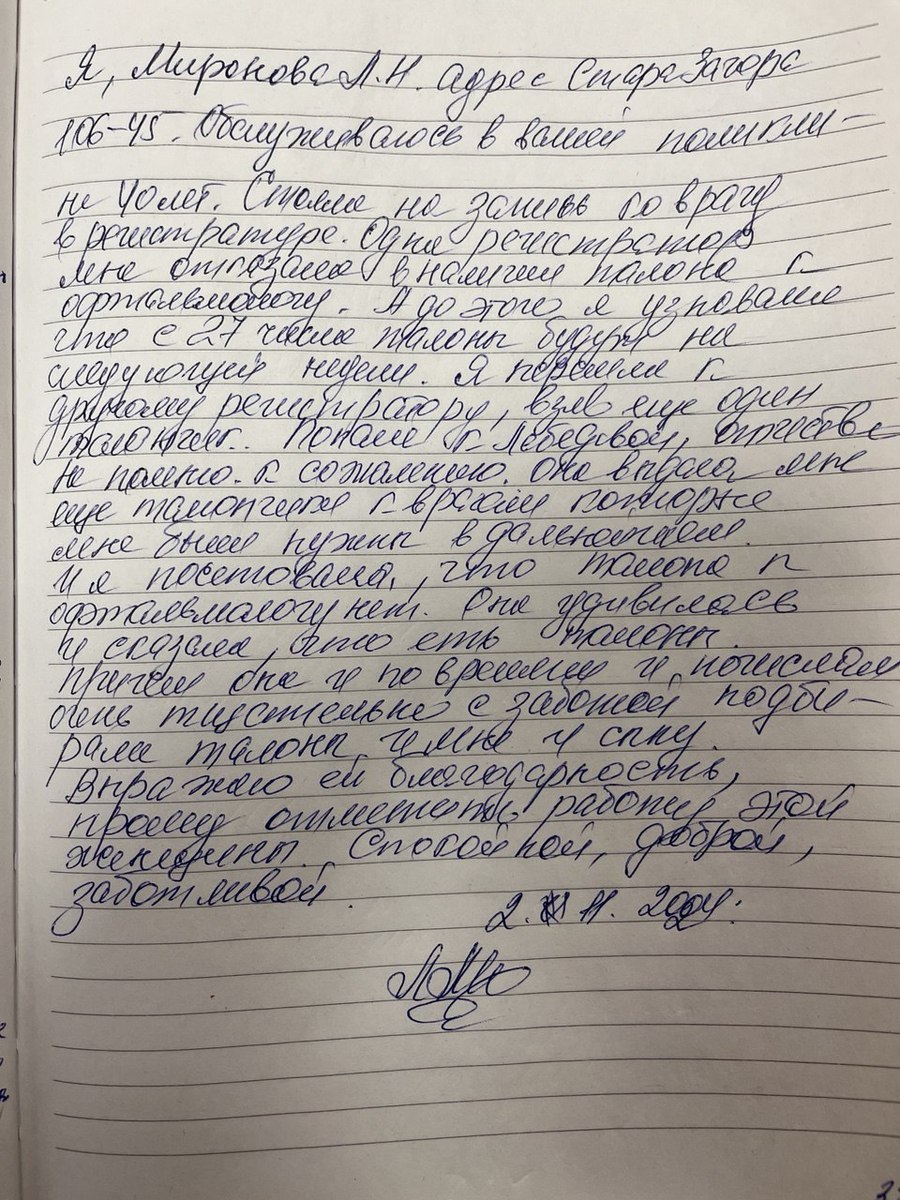 Я, Миронова Л.Н. адрес Стара Загора
106-45. Обслуживалось в вашей поликли-
не 40 лет. Стояла на запись ко врачу
в регистратуре. Одна регистратор
мне отказала в наличии талона к
офтальмологу. А до этого я узновала
что с 27 числа талоны будут на
следующей недели. Я перешла к
другому регистратору, взяв еще один
талончик. Попала к Лебедевой, отчество
не помню. к сожалению. Она выдала мне
еще талончики к врачам которые
мне были нужны в дальнейшем.
И я посетовала, что талона к
офтальмологу нет. Она удивилась
и сказала, что есть талоны.
Причем она и по времени и по числам
очень тщательно с заботой подби-
рала талоны и мне и сыну.
Выражаю ей благодарность,
прошу отметить работу этой
женщины. Спокойной, доброй,
заботливой.
2. 11. 2024.